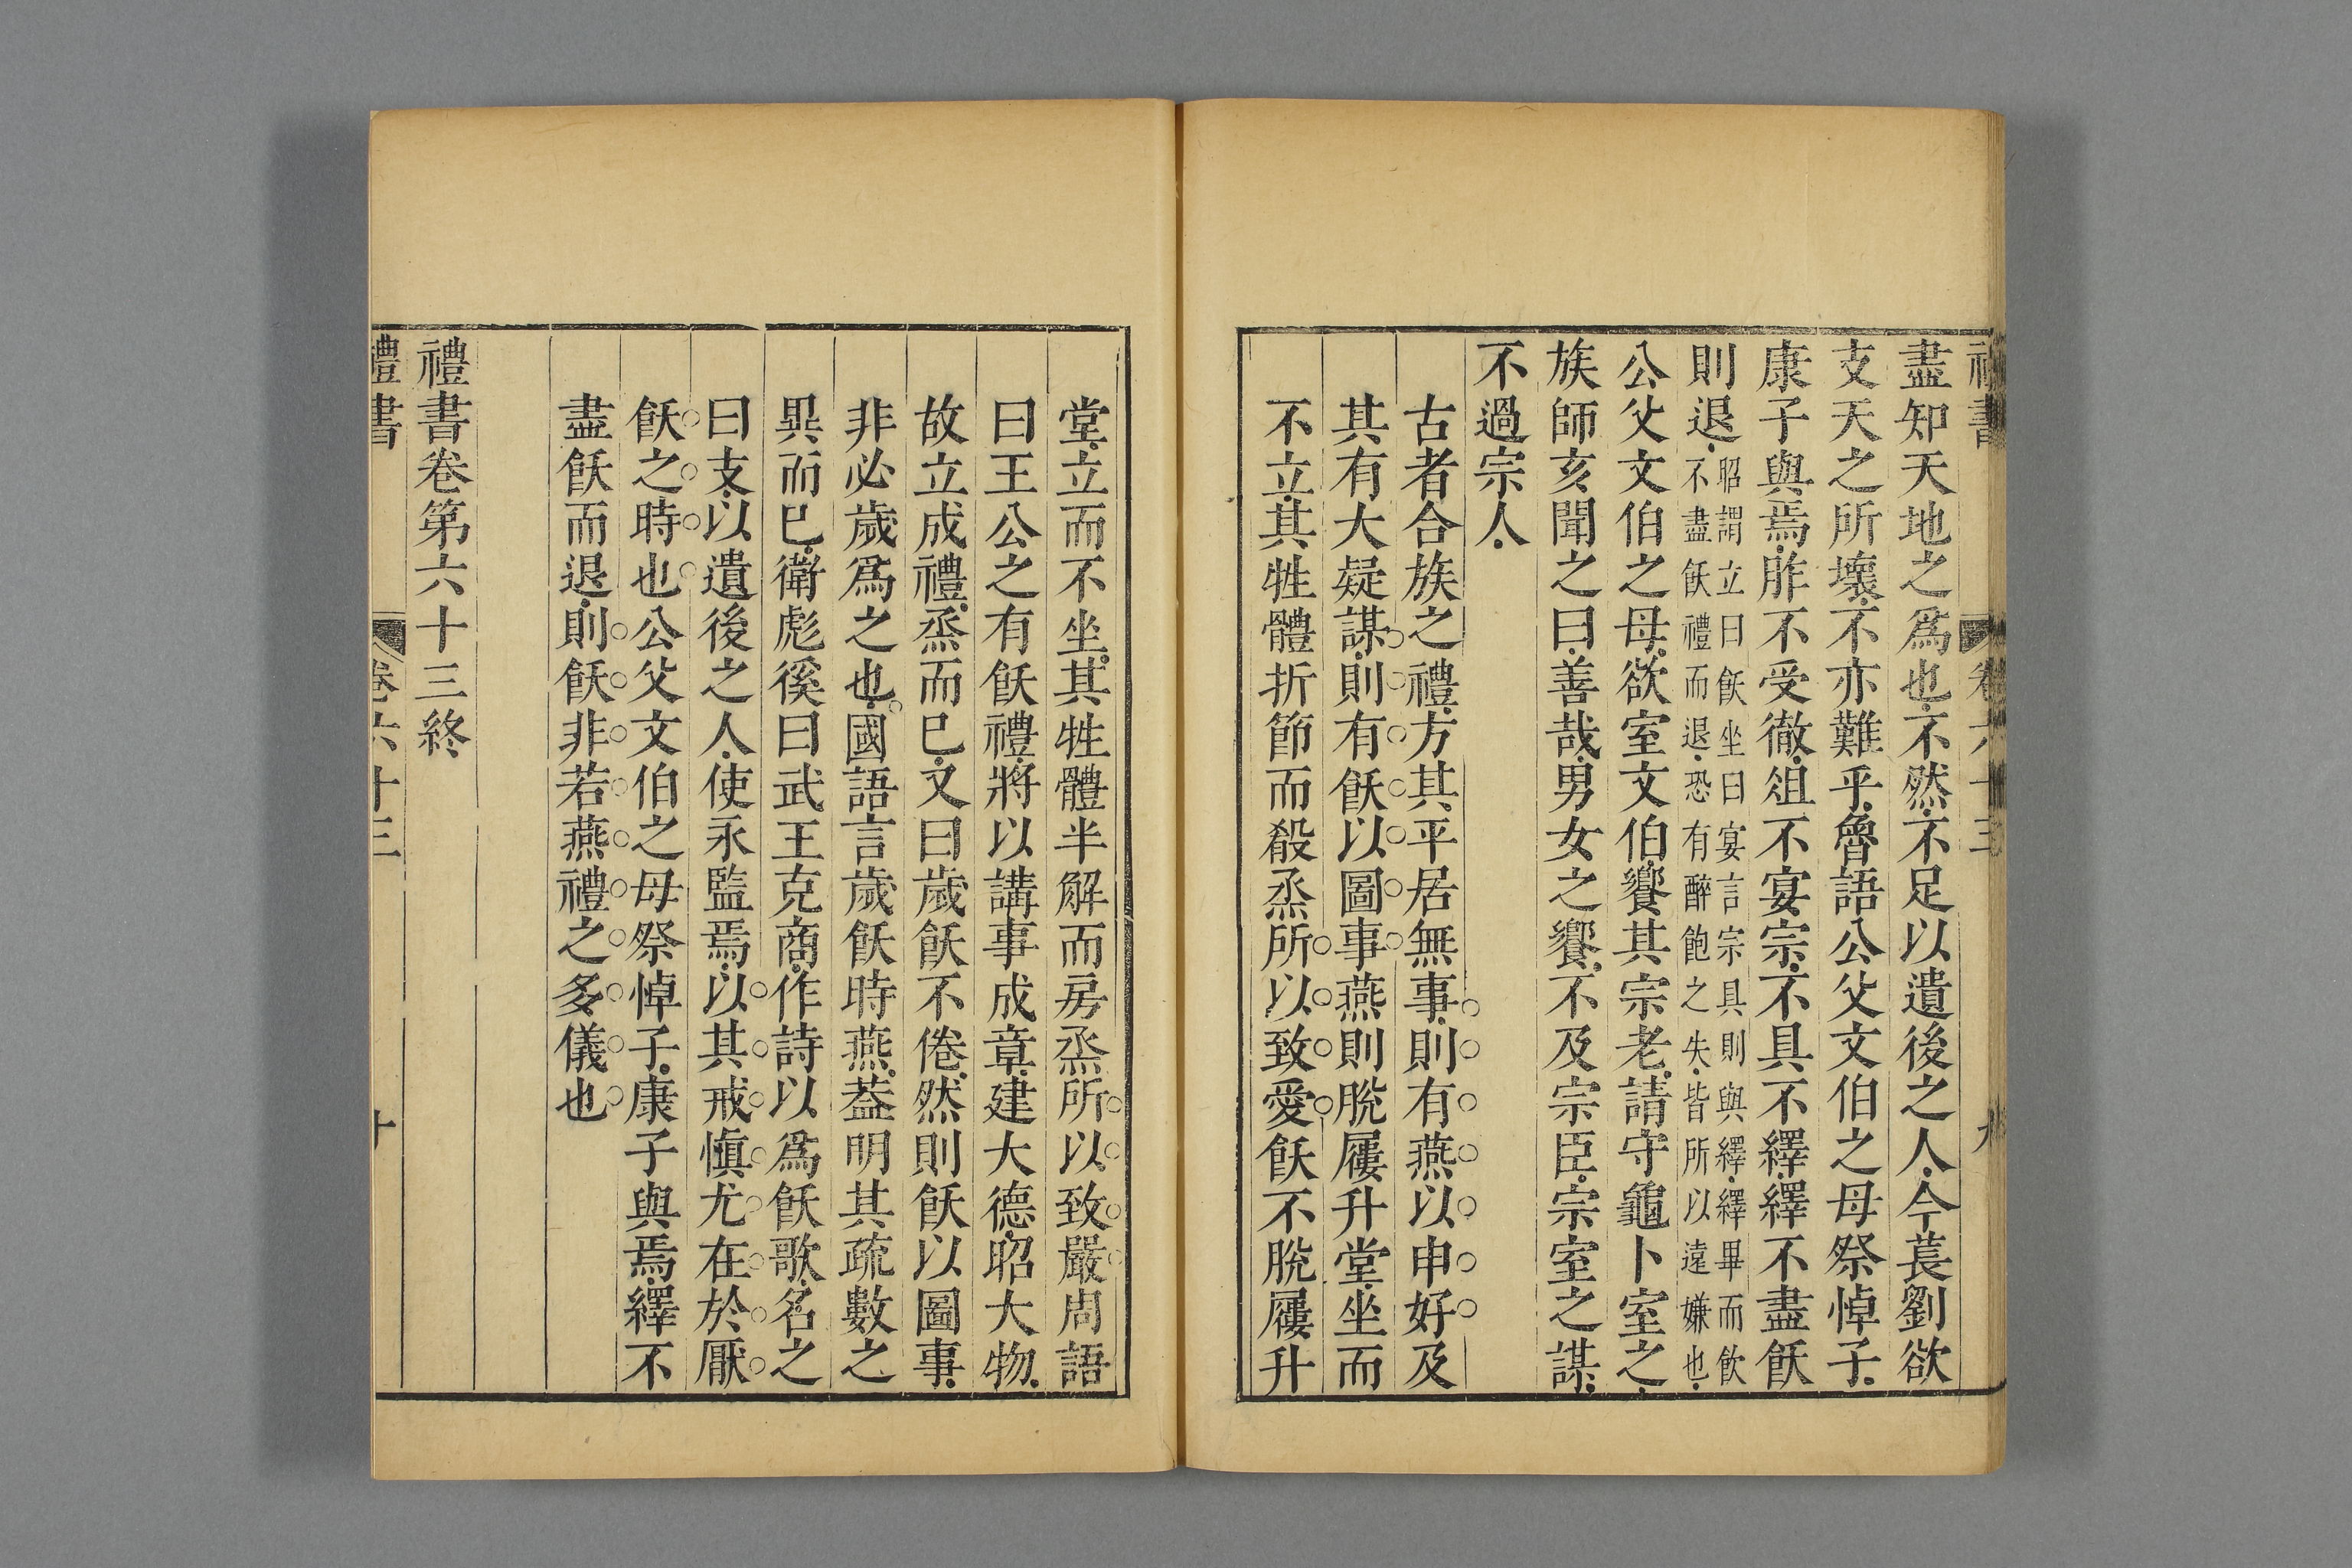 禮書 卷六十三 九
盡知天地之爲也不然不足以遺後之人今萇劉欲
支天之所壞不亦難乎魯語公父文伯之母祭悼子
康子與焉胙不受徹俎不宴宗不具不繹繹不盡飫
則退昭謂立曰飫坐曰宴言宗具則與繹繹畢而飲不盡飫禮而退恐有醉飽之失皆所以遠嫌也
公父文伯之母欲室文伯饗其宗老請守龜卜室之
族師亥聞之曰善哉男女之饗不及宗臣宗室之謀
不過宗人
古者合族之禮方其平居無事則有燕以申好及
其有大疑謀則有飫以圖事燕則脫屨升堂坐而
不立其牲體折節而殽烝所以致愛飫不脫屨升
堂立而不坐其牲體半解而房烝所以致嚴周語
曰王公之有飫禮將以講事成章建大德昭大物
故立成禮烝而已又曰歲飫不倦然則飫以圖事
非必歲爲之也國語言歲飫時燕葢明其疏數之
異而已衛彪徯曰武王克商作詩以爲飫歌名之
曰支以遺後之人使永監焉以其戒愼尤在於厭
飫之時也公父文伯之母祭悼子康子與焉繹不
盡飫而退則飫非若燕禮之多儀也
禮書卷第六十三終
禮書 卷六十三 十